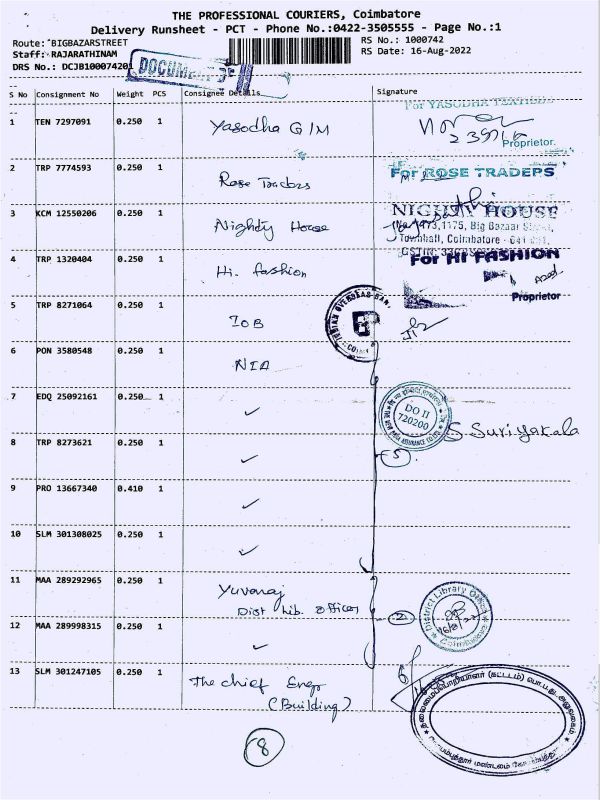 THE PROFESSIONAL COURIERS, Coimbatore
Delivery Runsheet - PCT - Phone No.:0422-3505555 - Page No.:1
Route: BIGBAZARSTREET
RS No.: 1000742
Staff: RAJARATHINAM
RS Date: 16-Aug-2022
DRS No.: DCJB100074201
DOCUMENT
S No Consignment No Weight PCS Consignee Details Signature
1 TEN 7297091 0.250 1 Yasodha G/M
For YASODHA
Proprietor.
2 TRP 7774593 0.250 1 Rose Traders
For ROSE TRADERS
3 KCM 12550206 0.250 1 Nighty House
NIGHTY HOUSE
1175, Big Bazaar
Townhall, Coimbatore - 641 001.
4 TRP 1320404 0.250 1 Hi. fashion
For HI FASHION
Proprietor
5 TRP 8271064 0.250 1 IOB
INDIAN OVERSEAS BANK
6 PON 3580548 0.250 1 NIA
7 EDQ 25092161 0.250 1 ✓
DO II
720200
S. Suriyakala
8 TRP 8273621 0.250 1 ✓
5
9 PRO 13667340 0.410 1 ✓
10 SLM 301308025 0.250 1 ✓
11 MAA 289292965 0.250 1 Yuvaraj
Dist Lib. Officer
2
District Library Office
12 MAA 289998315 0.250 1 ✓
13 SLM 301247105 0.250 1 The chief Engr
(Building)
தலைமைப்பொறியாளர் (கட்டடம்)
8